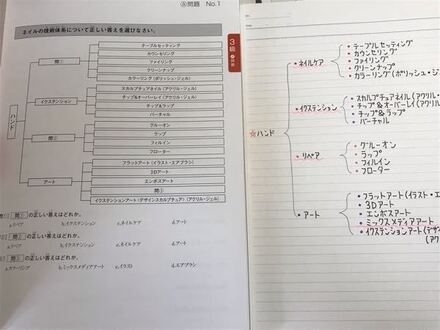 Ⓐ問題 No.1
ネイルの技術体系について正しい答えを選びなさい。
3級
ハンド
問①
テーブルセッティング
カウンセリング
ファイリング
クリーンナップ
カラーリング（ポリッシュ・ジェル）
イクステンション
スカルプチュアネイル（アクリル・ジェル）
チップ&オーバーレイ（アクリル・ジェル）
チップ&ラップ
バーチャル
問②
グルーオン
ラップ
フィルイン
フローター
アート
フラットアート（イラスト・エアブラシ）
3Dアート
エンボスアート
問③
イクステンションアート（デザインスカルプチュア）（アクリル・ジェル）
問① の正しい答えはどれか。
a.リペア b.イクステンション c.ネイルケア d.アート
問② の正しい答えはどれか。
a.リペア b.イクステンション c.ネイルケア d.アート
問③ の正しい答えはどれか。
a.カラーリング b.ミックスメディアアート c.イラスト d.エアブラシ
☆ハンド
・ネイルケア
・テーブルセッティング
・カウンセリング
・ファイリング
・クリーンナップ
・カラーリング（ポリッシュ・ジェ
・イクステンション
・スカルプチュアネイル（アクリル
・チップ&オーバーレイ（アクリル・
・チップ&ラップ
・バーチャル
・リペア
・グルーオン
・ラップ
・フィルイン
・フローター
・アート
・フラットアート（イラスト・エ
・3Dアート
・エンボスアート
・ミックスメディアアート
・イクステンションアート（デザ
（アク